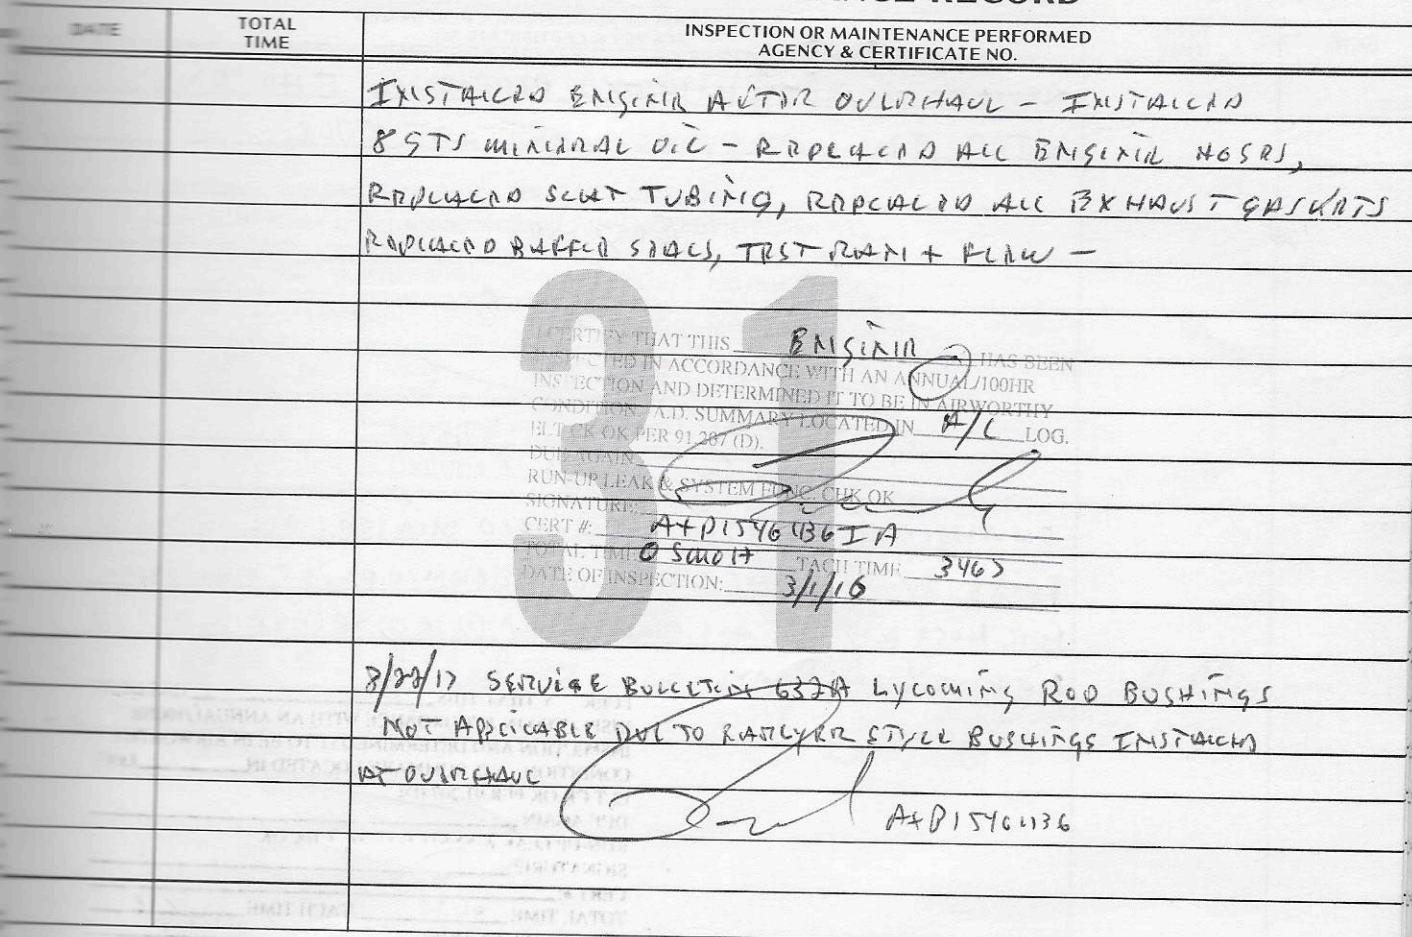 DATE
TOTAL TIME
INSPECTION OR MAINTENANCE PERFORMED
AGENCY & CERTIFICATE NO.
INSTALLED ENGINE AFTER OVERHAUL - INSTALLED
8 QTS MINERAL OIL - REPLACED ALL ENGINE HOSES,
REPLACED SCAT TUBING, REPLACED ALL EXHAUST GASKETS
REPLACED BAFFLE SEALS, TEST RAN + FLEW -
31
I CERTIFY THAT THIS ENGINE HAS BEEN
INSPECTED IN ACCORDANCE WITH AN ANNUAL/100HR
INSPECTION AND DETERMINED IT TO BE IN AIRWORTHY
CONDITION. A.D. SUMMARY LOCATED IN A/C LOG.
ELT CK OK PER 91.207 (D).
DUE AGAIN
RUN-UP LEAK & SYSTEM FUNC. CHK OK
SIGNATURE:
CERT #: A+P IA
TOTAL TIME 0 SMOH TACH TIME 3463
DATE OF INSPECTION: 3/1/16
SERVICE BULLETIN 632A LYCOMING ROD BUSHINGS
NOT APPLICABLE DUE TO EARLYER STYLE BUSHINGS INSTALLED
AT OVERHAUL
A+P